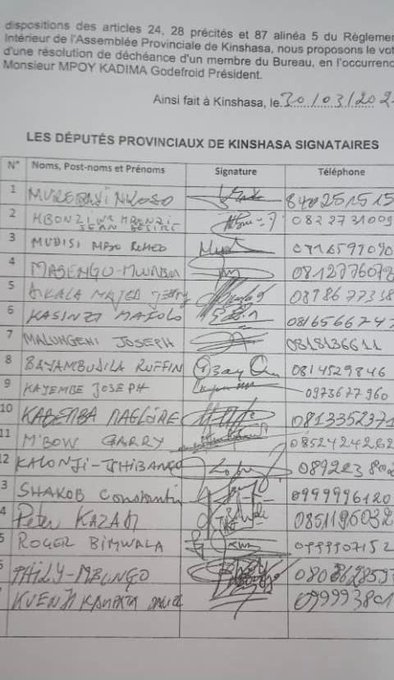 dispositions des articles 24, 28 précités et 87 alinéa 5 du Règleme
Intérieur de l'Assemblée Provinciale de Kinshasa, nous proposons le vot
d'une résolution de déchéance d'un membre du Bureau, en l'occurren
Monsieur MPOY KADIMA Godefroid Président.
Ainsi fait à Kinshasa, le 30/03/202
LES DÉPUTÉS PROVINCIAUX DE KINSHASA SIGNATAIRES
N° Noms, Post-noms et Prénoms Signature Téléphone
1 NKOSO 840251515
2 MBONZI WA MBONZI 0822731009
JEAN DESIRE
3 MUDISI ROMEO
4 MASENGO 0812776072
5
6 KASINZI 
7 MALUNGENI JOSEPH 0818136611
8 BAYAMBUDILA RUFFIN 0814529846
9 KAYEMBE JOSEPH 0973677960
10 KABEMBA MAGLOIRE 0813352371
11 M'BOW GARRY
12 KALONJI-TSHIBANGU
3 SHAKOB Constantin 0999996120
4 Peter KAZADI 0851196032
5 ROGER BIMWALA 0999907152
6 THILY-MBUNGO
KUENJI 099993801